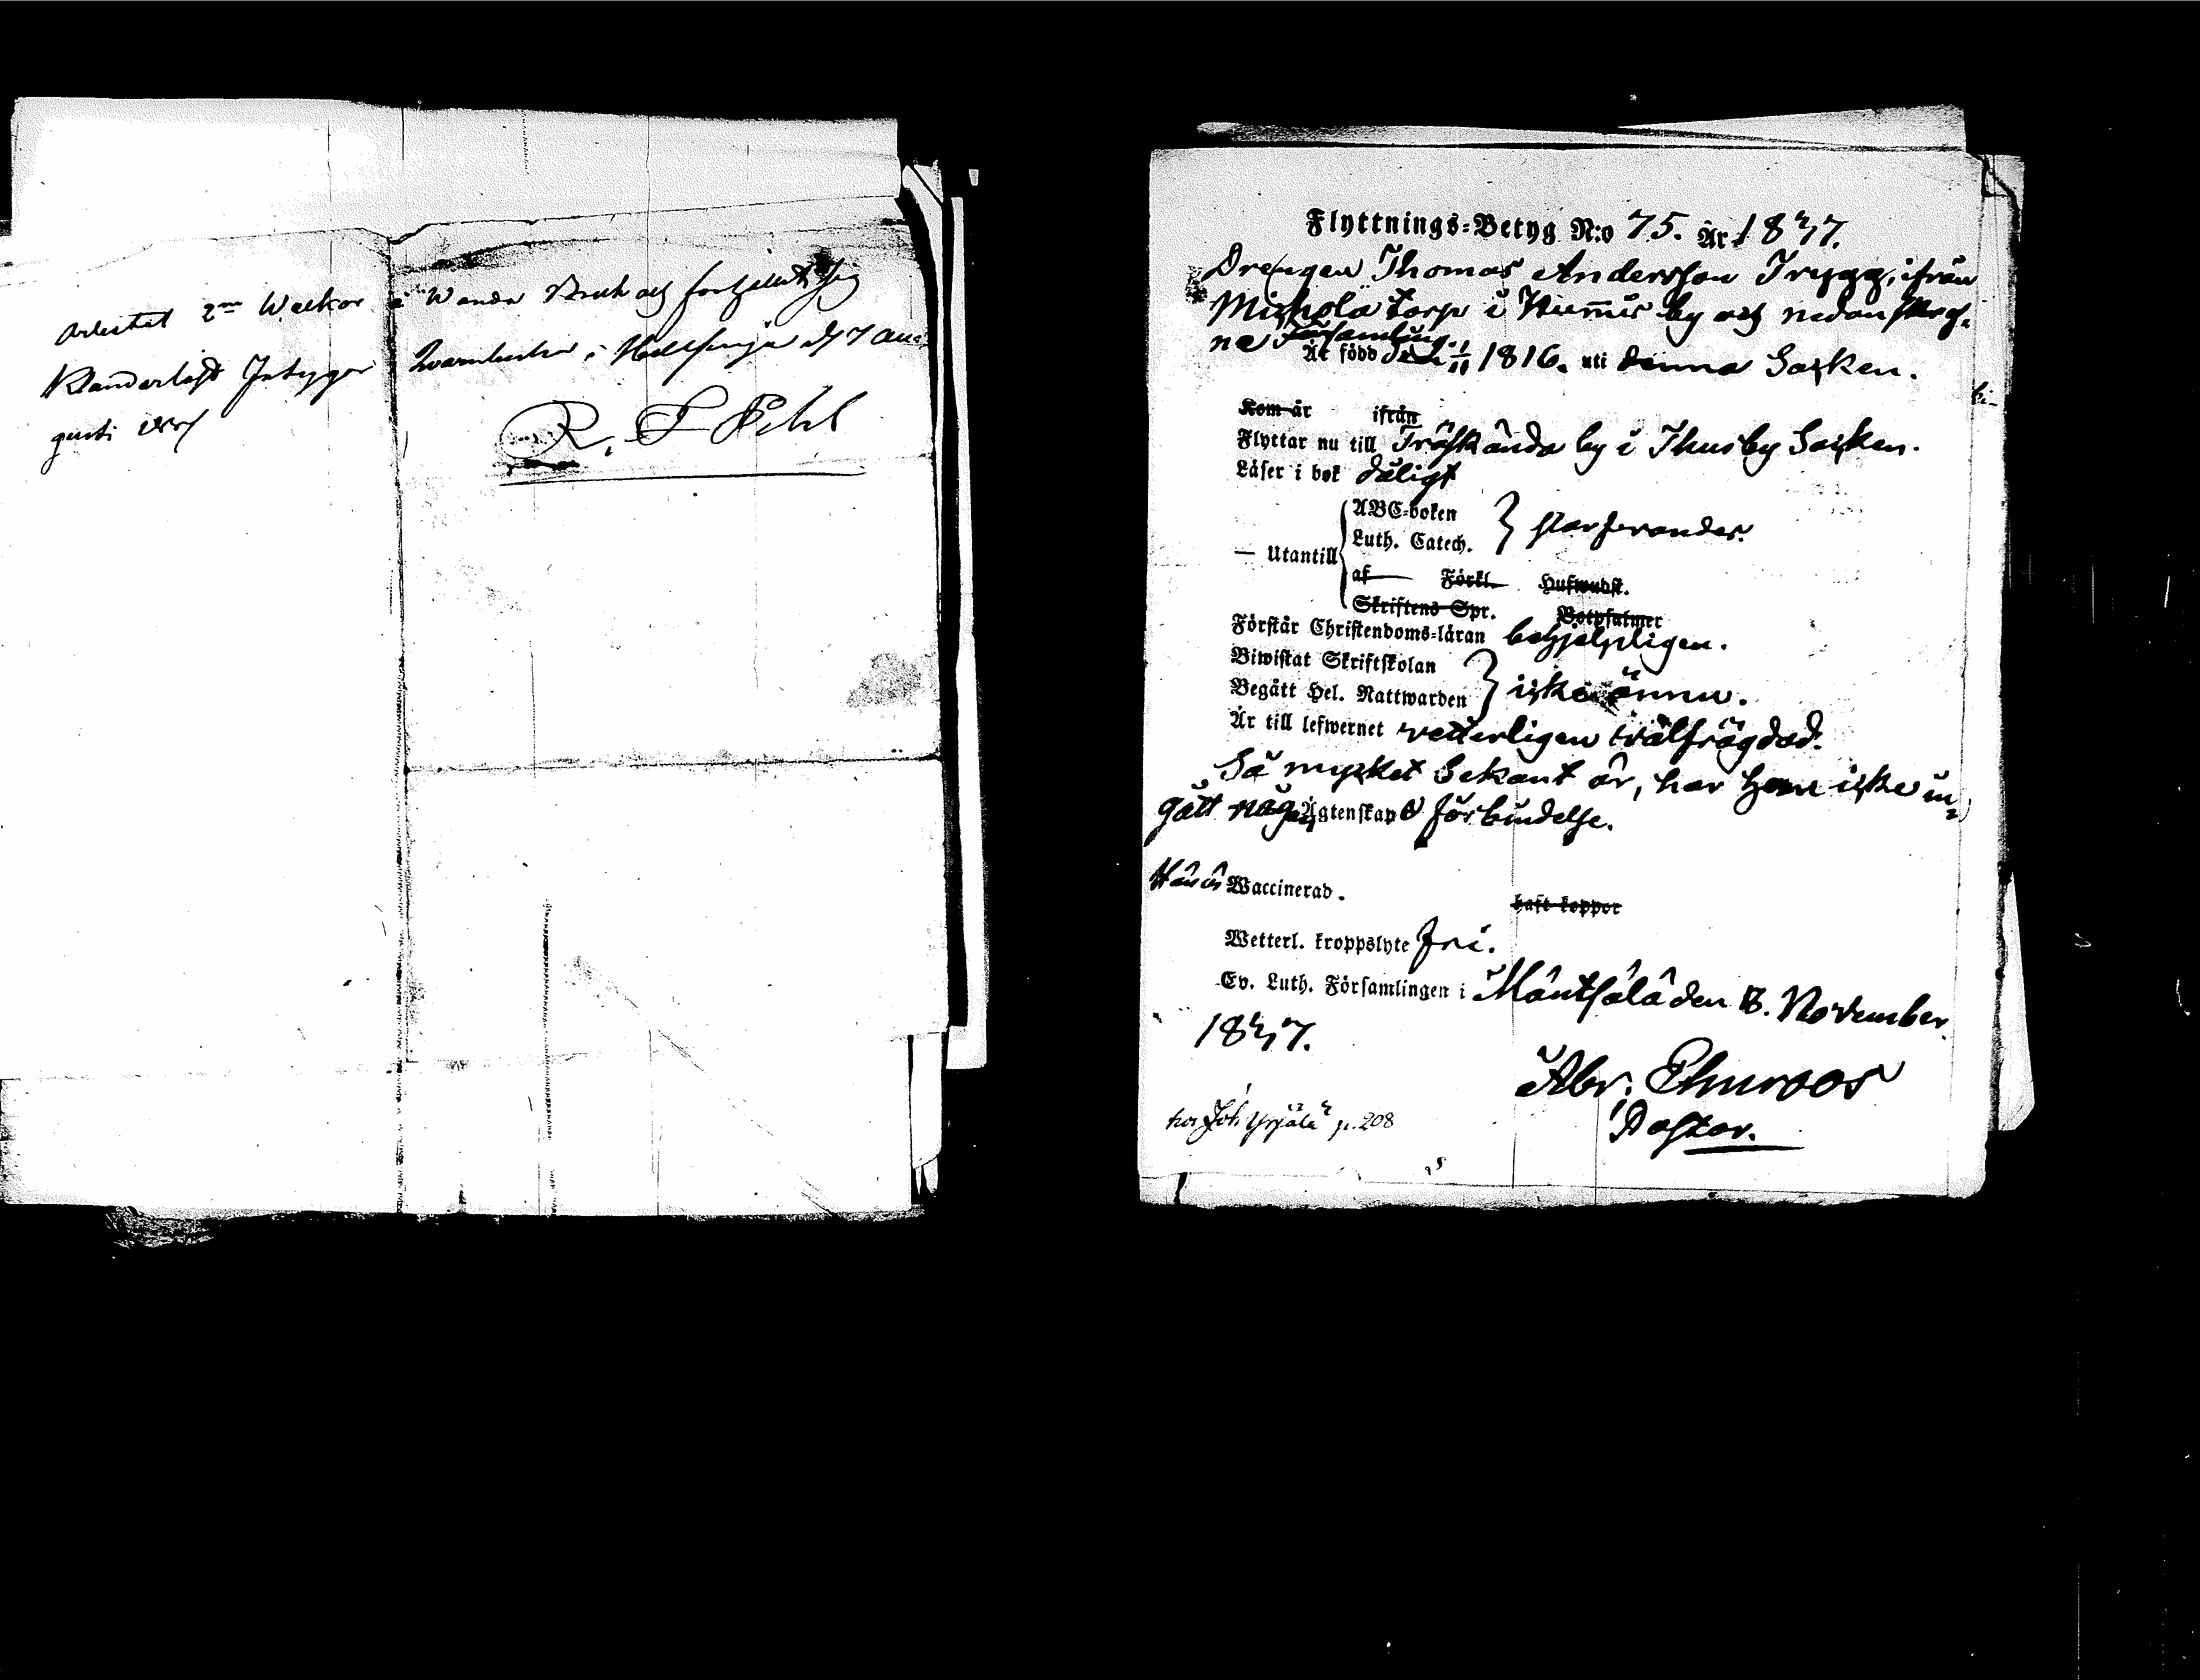 Arbetat 2ne Weckor å Wanda Bruk och förhållit sig
Klanderlöst Intygar Qvarnbacka i Helsinge d 7 Au-
gusti
R. F. Pihl
Flyttnings-Betyg N:o 75. År 1847.
Drengen Thomas Andersson Trygg, ifrån
Mickola torp i Nummis by och nedanskref-
ne Församling.
Är född den 1/11 1816. uti denna Socken.
Kom år ifrån
Flyttar nu till Träskända by i Thusby Socken.
Läser i bok dåligt
— Utantill
ABC-boken
Luth. Catech.
} stapprandes.
af Förkl. Hufwudst.
Skriftens Spr. Botpsalmer
Förstår Christendoms-läran behjelpligen.
Biwistat Skriftskolan
Begått Hel. Nattwarden
} icke ännu.
Är till lefwernet vetterligen wälfrägdad.
Så mycket bekant är, har han icke in-
gått någon Ägtenskaps förbindelse.
Han är Waccinerad. haft koppor
Wetterl. kroppslyte fri.
Ev. Luth. Församlingen i Mäntsälä den 8. November
1847.
Abr. Ehnroos
Pastor.
hos Joh. Yrjälä p. 208